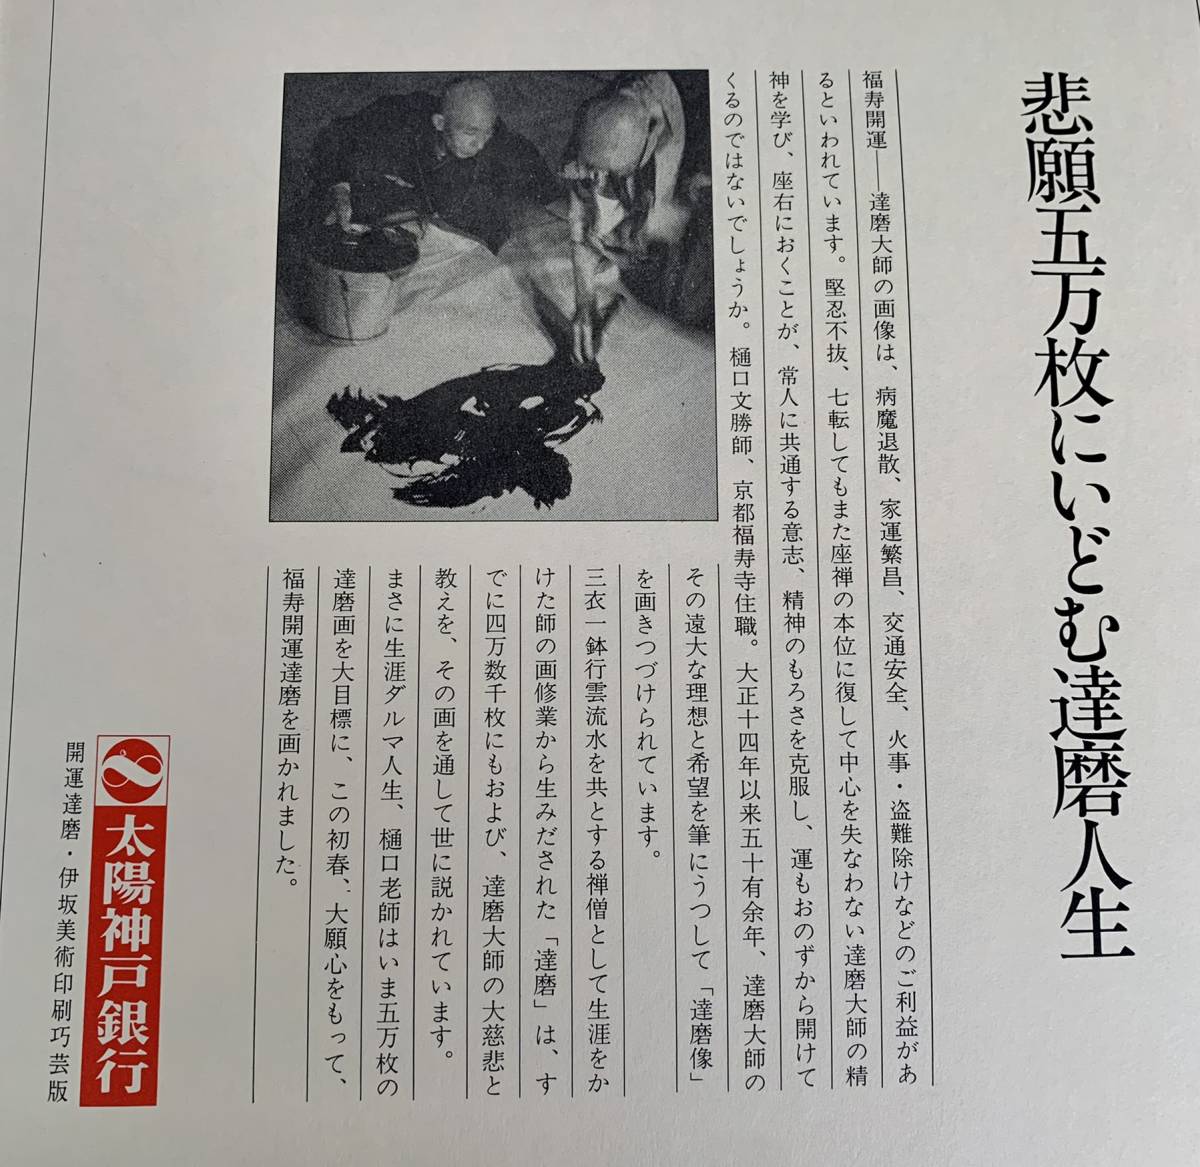 悲願五万枚にいどむ達磨人生
福寿開運――達磨大師の画像は、病魔退散、家運繁昌、交通安全、火事・盗難除けなどのご利益があ
るといわれています。堅忍不抜、七転してもまた座禅の本位に復して中心を失なわない達磨大師の精
神を学び、座右におくことが、常人に共通する意志、精神のもろさを克服し、運もおのずから開けて
くるのではないでしょうか。樋口文勝師、京都福寿寺住職。大正十四年以来五十有余年、達磨大師の
その遠大な理想と希望を筆にうつして「達磨像」
を画きつづけられています。
三衣一鉢行雲流水を共とする禅僧として生涯をか
けた師の画修業から生みだされた「達磨」は、す
でに四万数千枚にもおよび、達磨大師の大慈悲と
教えを、その画を通して世に説かれています。
まさに生涯ダルマ人生、樋口老師はいま五万枚の
達磨画を大目標に、この初春、大願心をもって、
福寿開運達磨を画かれました。
太陽神戸銀行
開運達磨・伊坂美術印刷巧芸版